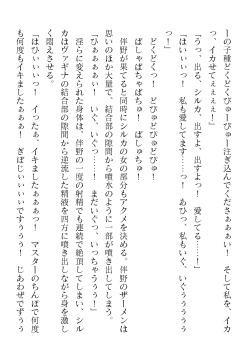 ―の子種どくどくびゅーびゅー注ぎ込んでくださぁぃ！　そして私を、イカ
っ、イカせてぇぇぇぇ！」
「うっ、出る、シルカ、出すよ、出すよっ！　愛してる……！」
「はいぃぃっ！　私も愛してます……っ！　あひっ、私もいく、いぐぅぅぅぅ
っ！」
どくどくっ！　どぴゅどぴゅどぴゅ！
ぱしゃぱちゃぱちゃ！　ぱしゅちゅ！
伴野が果てると同時にシルカの女の部分もアクメを決める。伴野のザーメンは
思いのほか大量で、結合部の隙間から噴水のように一部が噴き出してしまう。
「ひぁぁぁぁぃ！　いぐ、いぐっ……！　まだいぐっ、いっちゃううう！」
淫らに変えられた身体は、伴野の一度の射精でも連続で絶頂してしまい、シル
カはヴァギナの結合部の隙間から逆流した精液を四方に噴き出しながら身を激し
く悶えさせる。
「はひぃぃぃっ！　イったぁ、イキましたぁぁぁっ！　マスターのちんぽで何度
も何度もイキましたぁぁぁ！　ぎぼじぃぃぃぃですぅぅぅ！　じあわぜでずぅぅ